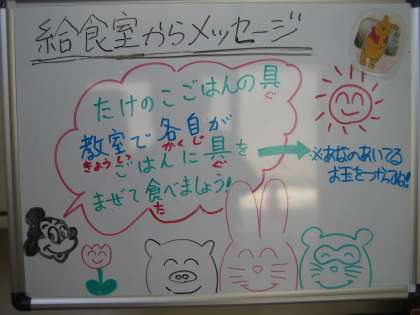 給食室からメッセージ
たけのこごはんの具
ぐ
教室で各自が
きょうしつ かくじ
ごはんに具を
ぐ
まぜて食べましょう!
た
※あなのあいてる
お玉をつかってね!!